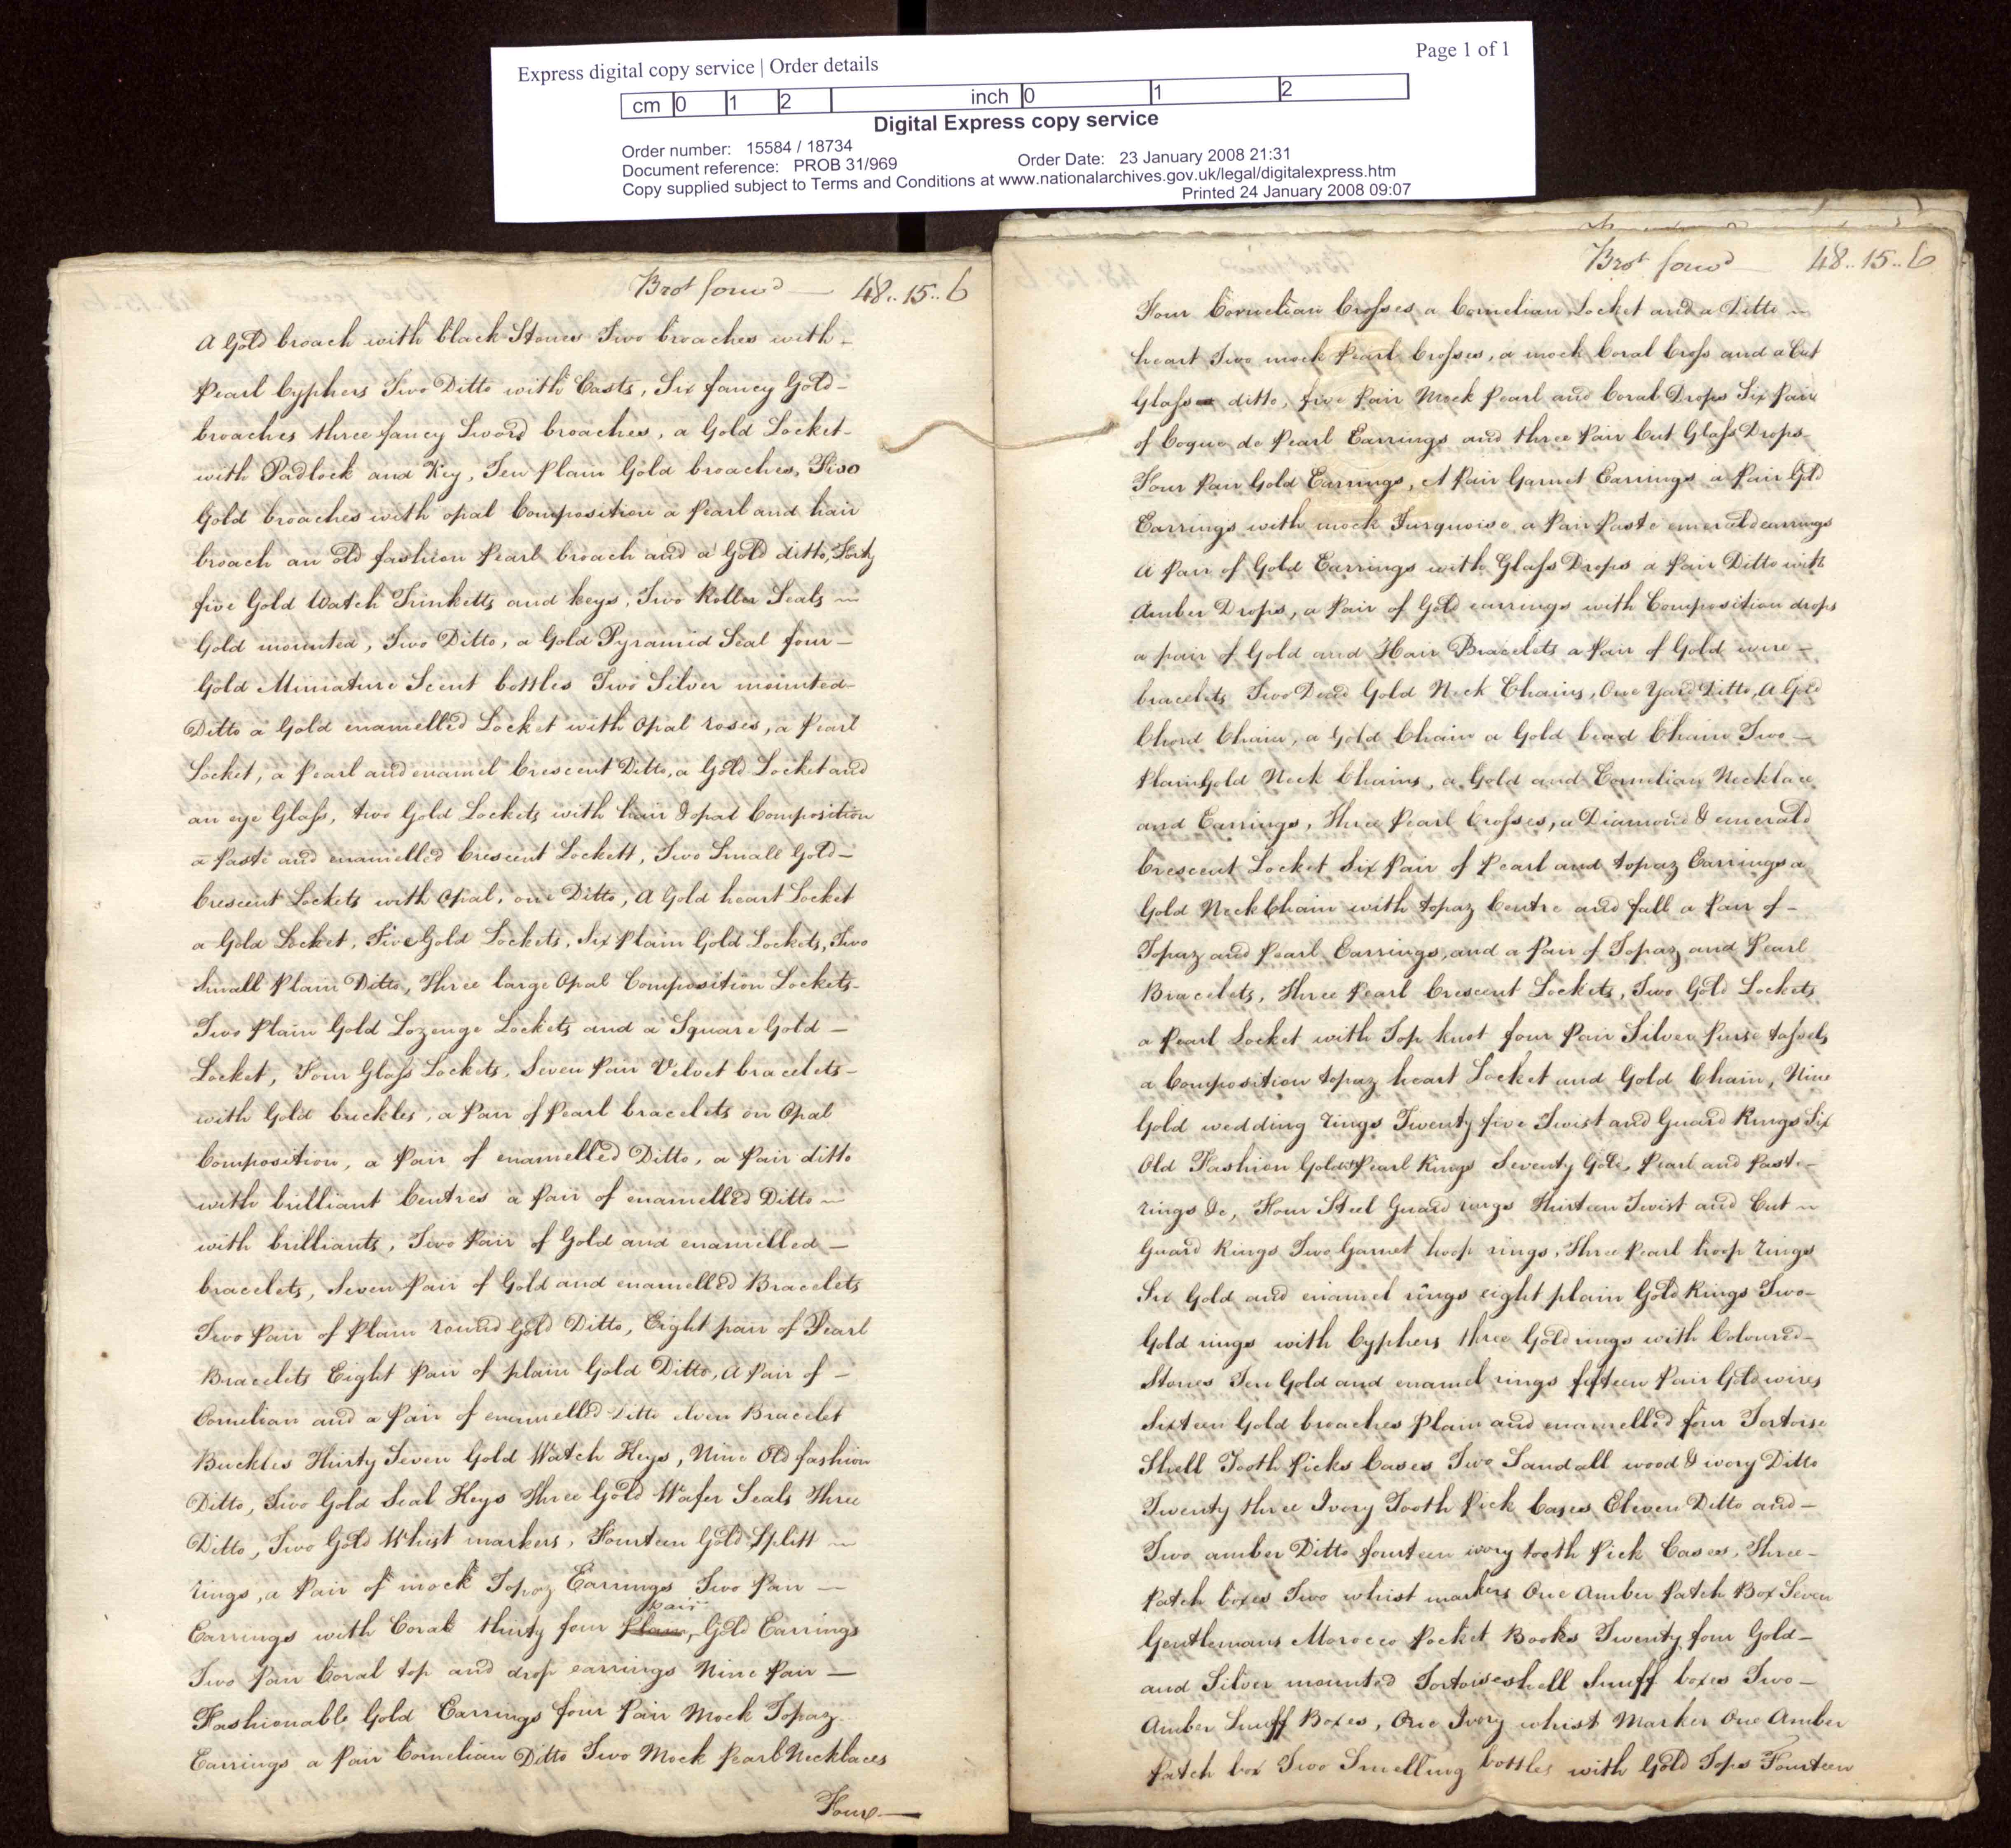 Express digital copy service | Order details
Page 1 of 1
cm 0 1 2 inch 0 1 2
Digital Express copy service
Order number: 15584 / 18734
Document reference: PROB 31/969
Order Date: 23 January 2008 21:31
Copy supplied subject to Terms and Conditions at www.nationalarchives.gov.uk/legal/digitalexpress.htm
Printed 24 January 2008 09:07
Brot forwd — 48..15..6
A Gold broach with black Stones Two broaches with –
Pearl Cyphers Two Ditto with Casts, Six fancy Gold –
broaches three fancy Sword broaches, a Gold Locket –
with Padlock and Key, Ten Plain Gold broaches, Two
Gold broaches with opal Composition a Pearl and hair
broach an old fashion Pearl broach and a Gold ditto, Forty
five Gold Watch Trinketts and keys, Two Roller Seals ~
Gold mounted, Two Ditto, a Gold Pyramid Seal four –
Gold Miniature Scent bottles Two Silver mounted –
Ditto a Gold enamelled Locket with Opal roses, a Pearl
Locket, a Pearl and enamel Crescent Ditto, a Gold Locket and
an eye Glass, two Gold Lockets with hair & opal Composition
a Paste and enamelled Crescent Lockett, Two Small Gold –
Crescent Lockets with Opal, one Ditto, A Gold heart Locket
a Gold Locket, Five Gold Lockets, Six Plain Gold Lockets, Two
Small Plain Ditto, Three large Opal Composition Lockets –
Two Plain Gold Lozenge Lockets and a Square Gold –
Locket, Four Glass Lockets, Seven Pair Velvet bracelets –
with Gold buckles, a Pair of Pearl bracelets on Opal
Composition, a Pair of enamelled Ditto, a Pair ditto
with brilliant Centres a Pair of enamelled Ditto ~
with brilliants, Two Pair of Gold and enamelled –
bracelets, Seven Pair of Gold and enamelled Bracelets
Two Pair of Plain round Gold Ditto, Eight pair of Pearl
Bracelets Eight Pair of plain Gold Ditto, A Pair of –
Cornelian and a Pair of enamelled Ditto eleven Bracelet
Buckles Thirty Seven Gold Watch Keys, Nine Old fashion
Ditto, Two Gold Seal Keys Three Gold Wafer Seals Three
Ditto, Two Gold Whist markers, Fourteen Gold Splitt ~
rings, a Pair of mock Topaz Earrings Two Pair —
pair
Earrings with Coral thirty four Plain, Gold Earrings
Two Pair Coral top and drop earrings Nine Pair —
Fashionable Gold Earrings four Pair Mock Topaz
Earrings a Pair Cornelian Ditto Two Mock Pearl Necklaces
Four —
Brot forwd — 48..15..6
Four Cornelian Crosses a Cornelian Locket and a Ditto ~
heart Two mock Pearl Crosses, a mock Coral Cross and a Cut
Glass ditto, five Pair Mock Pearl and Coral Drops Six Pair
of Coque de Pearl Earrings and three Pair Cut Glass Drops –
Four Pair Gold Earrings, A Pair Garnet Earrings a Pair Gold
Earrings with mock Turquoise a Pair Paste emerald earrings
A Pair of Gold Earrings with Glass Drops a Pair Ditto with
Amber Drops, a Pair of Gold earrings with Composition drops
a pair of Gold and Hair Bracelets a Pair of Gold wire –
bracelets Two Dead Gold Neck Chains, One Yard Ditto, A Gold
Chord Chain, a Gold Chain a Gold bead Chain Two —
Plain Gold Neck Chains, a Gold and Cornelian Necklace
and Earrings, Three Pearl Crosses, a Diamond & emerald
Crescent Locket Six Pair of Pearl and topaz Earrings a
Gold Neck Chain with topaz Centre and full a Pair of –
Topaz and Pearl Earrings, and a Pair of Topaz and Pearl
Bracelets, Three Pearl Crescent Lockets, Two Gold Lockets
a Pearl Locket with Top knot four Pair Silver Purse tassels
a Composition topaz heart Locket and Gold Chain, Nine
Gold wedding rings Twenty five Twist and Guard Rings Six
Old Fashion Gold & Pearl Rings Seventy Gold, Pearl and Paste –
rings &c, Four Steel Guard rings Thirteen Twist and Cut ~
Guard Rings Two Garnet hoop rings, Three Pearl hoop rings
Six Gold and enamel rings eight plain Gold Rings Two –
Gold rings with Cyphers three Gold rings with Coloured –
Stones Ten Gold and enamel rings fifteen Pair Gold wires
Sixteen Gold broaches Plain and enamelled four Tortoise
Shell Tooth Picks Cases Two Sandall wood & ivory Ditto
Twenty three Ivory Tooth Pick Cases Eleven Ditto and –
Two amber Ditto fourteen ivory tooth Pick Cases, Three –
Patch boxes Two whist markers One Amber Patch Box Seven
Gentlemans Morocco Pocket Books Twenty four Gold –
and Silver mounted Tortoiseshell Snuff boxes Two –
Amber Snuff Boxes, One Ivory whist Marker One Amber
Patch box Two Smelling bottles with Gold Tops Fourteen